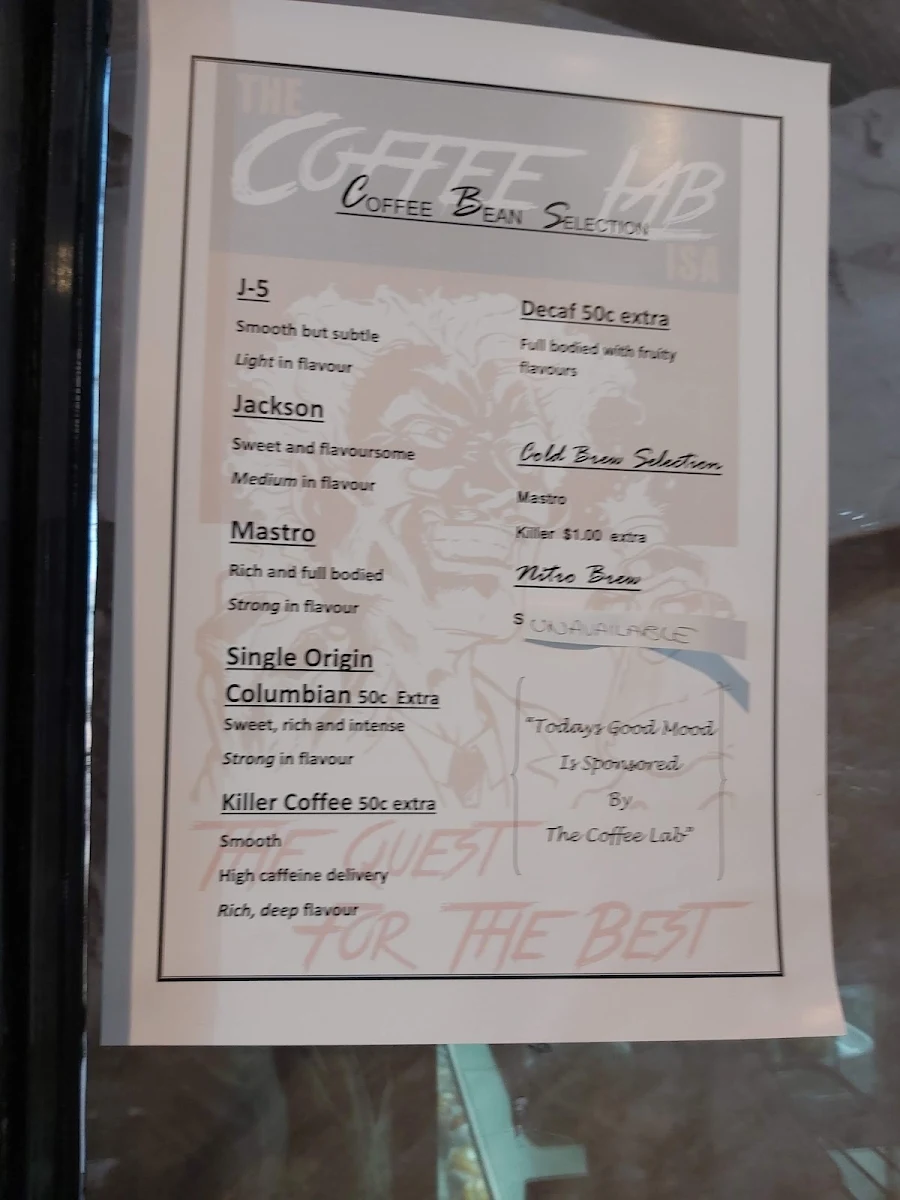 THE
COFFEE LAB
ISA
COFFEE BEAN SELECTION
J-5
Smooth but subtle
Light in flavour
Jackson
Sweet and flavoursome
Medium in flavour
Mastro
Rich and full bodied
Strong in flavour
Single Origin
Columbian 50c Extra
Sweet, rich and intense
Strong in flavour
Killer Coffee 50c extra
Smooth
High caffeine delivery
Rich, deep flavour
Decaf 50c extra
Full bodied with fruity
flavours
Cold Brew Selection
Mastro
Killer $1.00 extra
Nitro Brew
S UNAVAILABLE
"Todays Good Mood
Is Sponsored
By
The Coffee Lab"
THE QUEST
FOR THE BEST